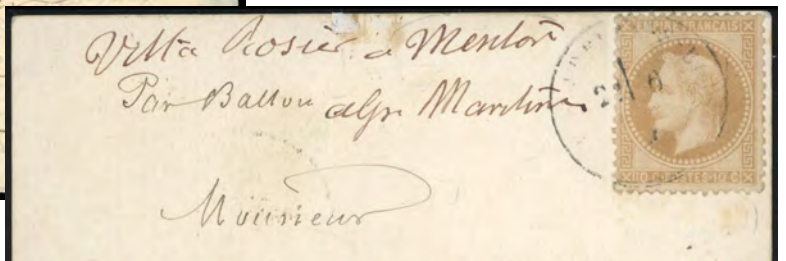 Villa Rosier a Menton
Par Ballon alpes Maritimes
Monsieur
EMPIRE FRANÇAIS
10 C POSTES 10 C